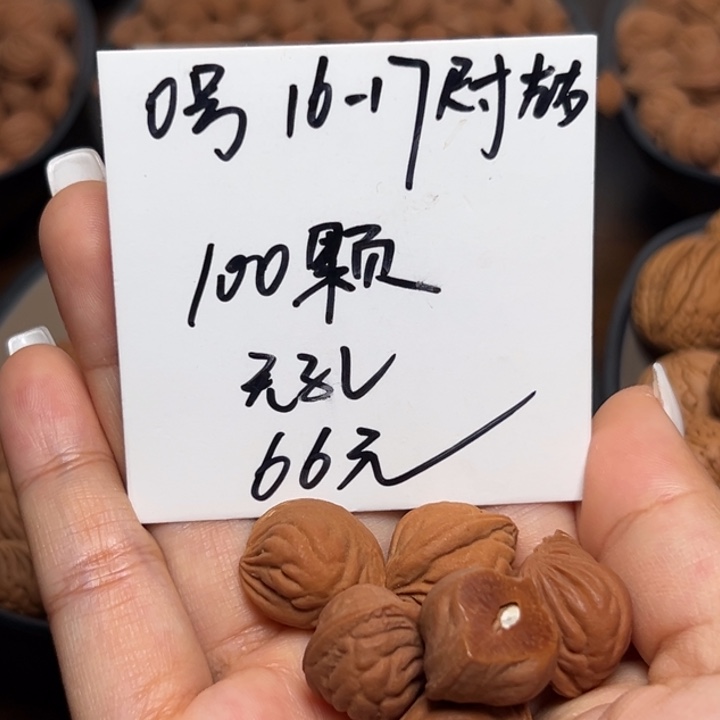 0号 16-17尉赫
100颗
无孔
66元